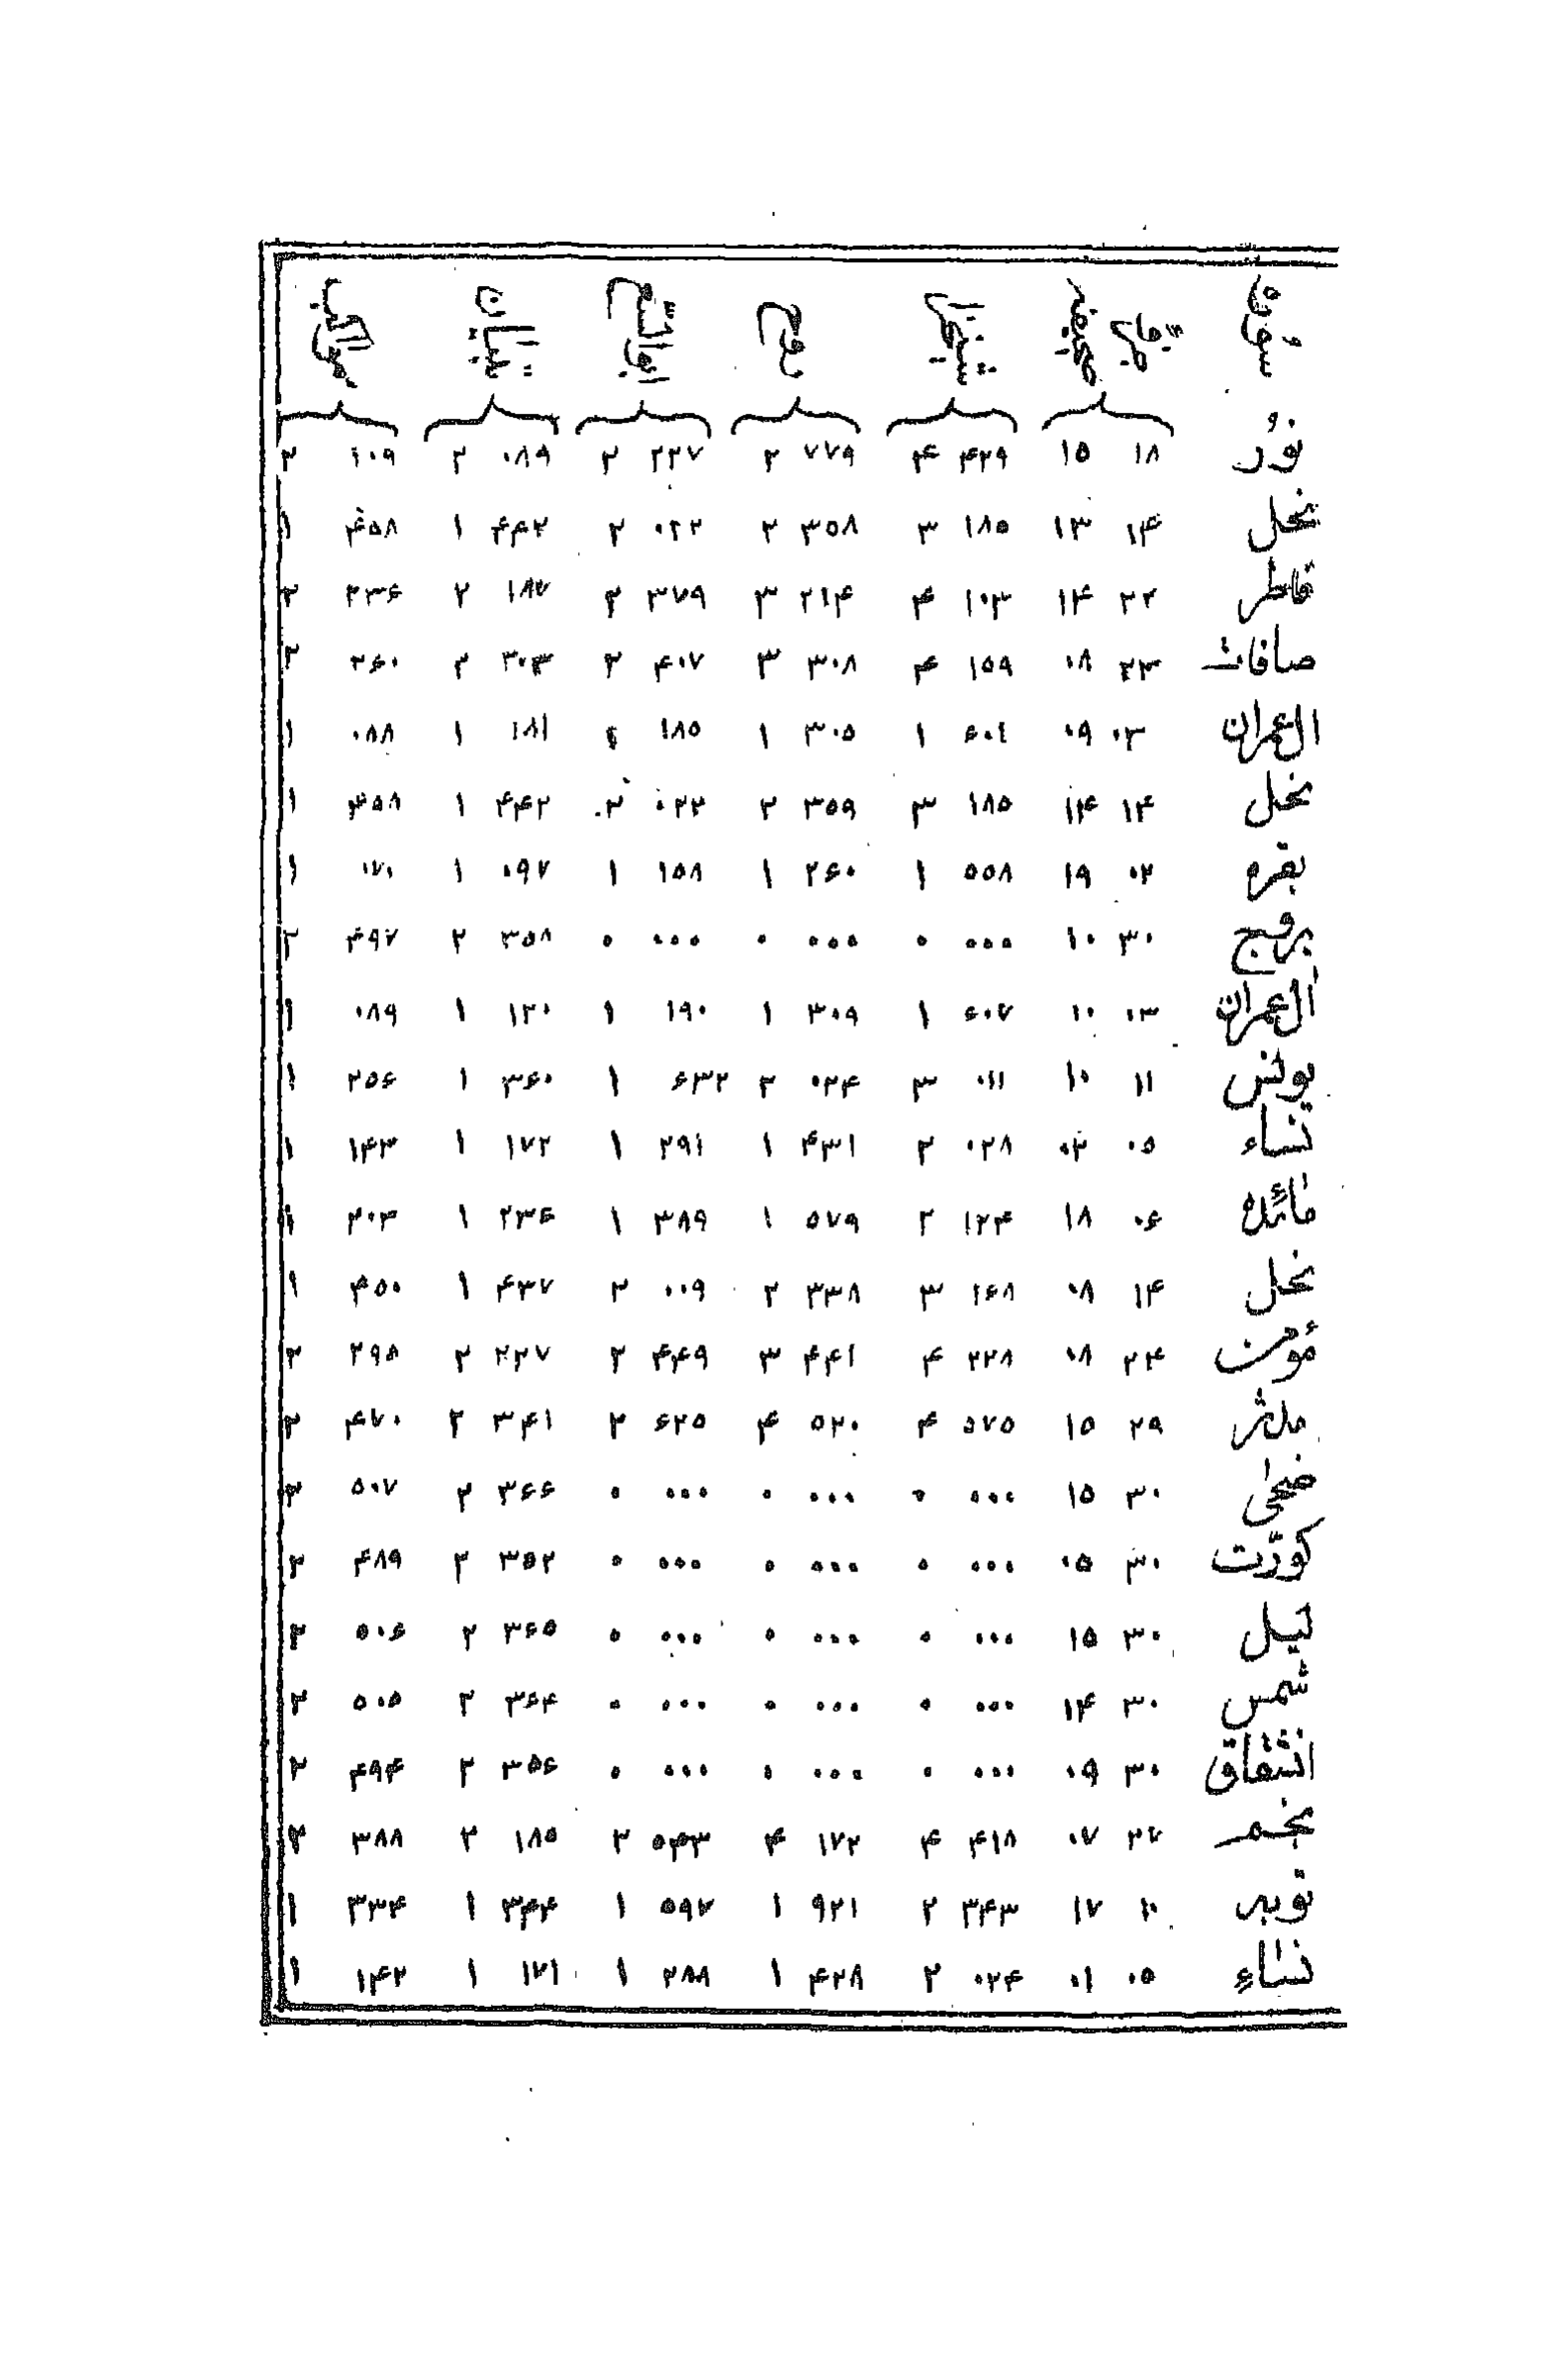 نور ۱۸ ۱۵ ۴۲۹ ۴ ۷۷۹ ۲ ۲۲۷ ۲ ۰۸۹ ۲ ۱۰۹ ۲
نحل ۱۴ ۱۳ ۱۸۵ ۳ ۳۵۸ ۲ ۰۲۲ ۲ ۴۴۲ ۱ ۴۵۸ ۱
فاطر ۲۲ ۱۴ ۱۰۳ ۴ ۲۱۴ ۳ ۳۷۹ ۲ ۱۸۷ ۲ ۲۳۶ ۲
صافات ۲۳ ۰۸ ۱۵۹ ۴ ۳۰۸ ۳ ۴۰۷ ۲ ۲۰۳ ۲ ۲۶۰ ۲
ال عمران ۰۳ ۰۹ ۶۰۱ ۱ ۳۰۵ ۱ ۱۸۵ ۱ ۱۸۱ ۱ ۰۸۸ ۱
نحل ۱۴ ۱۴ ۱۸۵ ۳ ۳۵۹ ۲ ۰۲۲ ۲ ۴۴۲ ۱ ۴۵۸ ۱
بقره ۰۲ ۱۹ ۵۵۸ ۱ ۲۶۰ ۱ ۱۵۸ ۱ ۰۹۷ ۱ ۰۷۰ ۱
بروج ۳۰ ۱۰ ۰۰۰ ۰ ۰۰۰ ۰ ۰۰۰ ۰ ۳۵۸ ۲ ۴۹۷ ۲
ال عمران ۰۳ ۱۰ ۶۰۷ ۱ ۳۰۹ ۱ ۱۹۰ ۱ ۱۲۰ ۱ ۰۸۹ ۱
یونس ۱۱ ۱۰ ۰۱۱ ۳ ۰۲۴ ۲ ۶۳۲ ۱ ۳۶۰ ۱ ۲۵۶ ۱
نساء ۰۵ ۰۲ ۰۲۸ ۲ ۴۳۱ ۱ ۲۹۱ ۱ ۱۷۲ ۱ ۱۴۳ ۱
مائده ۰۶ ۱۸ ۱۲۴ ۲ ۵۷۹ ۱ ۳۸۹ ۱ ۲۳۶ ۱ ۲۰۳ ۱
نحل ۱۴ ۰۸ ۱۶۸ ۳ ۳۳۸ ۲ ۰۰۹ ۲ ۴۳۷ ۱ ۴۵۰ ۱
مؤمن ۲۴ ۰۸ ۲۲۸ ۴ ۴۴۱ ۳ ۴۴۹ ۲ ۲۲۷ ۲ ۲۹۵ ۲
مدثر ۲۹ ۱۵ ۵۷۵ ۴ ۵۲۰ ۴ ۶۲۵ ۲ ۳۴۱ ۲ ۴۷۰ ۲
ضحی ۳۰ ۱۵ ۰۰۰ ۰ ۰۰۰ ۰ ۰۰۰ ۰ ۳۶۶ ۲ ۵۰۷ ۲
کورت ۳۰ ۰۵ ۰۰۰ ۰ ۰۰۰ ۰ ۰۰۰ ۰ ۳۵۲ ۲ ۴۸۹ ۲
لیل ۳۰ ۱۵ ۰۰۰ ۰ ۰۰۰ ۰ ۰۰۰ ۰ ۳۶۵ ۲ ۵۰۶ ۲
شمس ۳۰ ۱۴ ۰۰۰ ۰ ۰۰۰ ۰ ۰۰۰ ۰ ۳۶۴ ۲ ۵۰۵ ۲
انشقاق ۳۰ ۰۹ ۰۰۰ ۰ ۰۰۰ ۰ ۰۰۰ ۰ ۳۵۶ ۲ ۴۹۴ ۲
نجم ۲۷ ۰۷ ۴۱۸ ۴ ۱۷۲ ۴ ۵۴۳ ۲ ۱۸۵ ۲ ۳۸۸ ۲
توبه ۱۰ ۱۷ ۳۴۳ ۲ ۹۲۱ ۱ ۵۹۷ ۱ ۳۴۴ ۱ ۲۳۴ ۱
نساء ۰۵ ۰۱ ۰۲۴ ۲ ۴۲۸ ۱ ۲۸۸ ۱ ۱۷۱ ۱ ۱۴۲ ۱